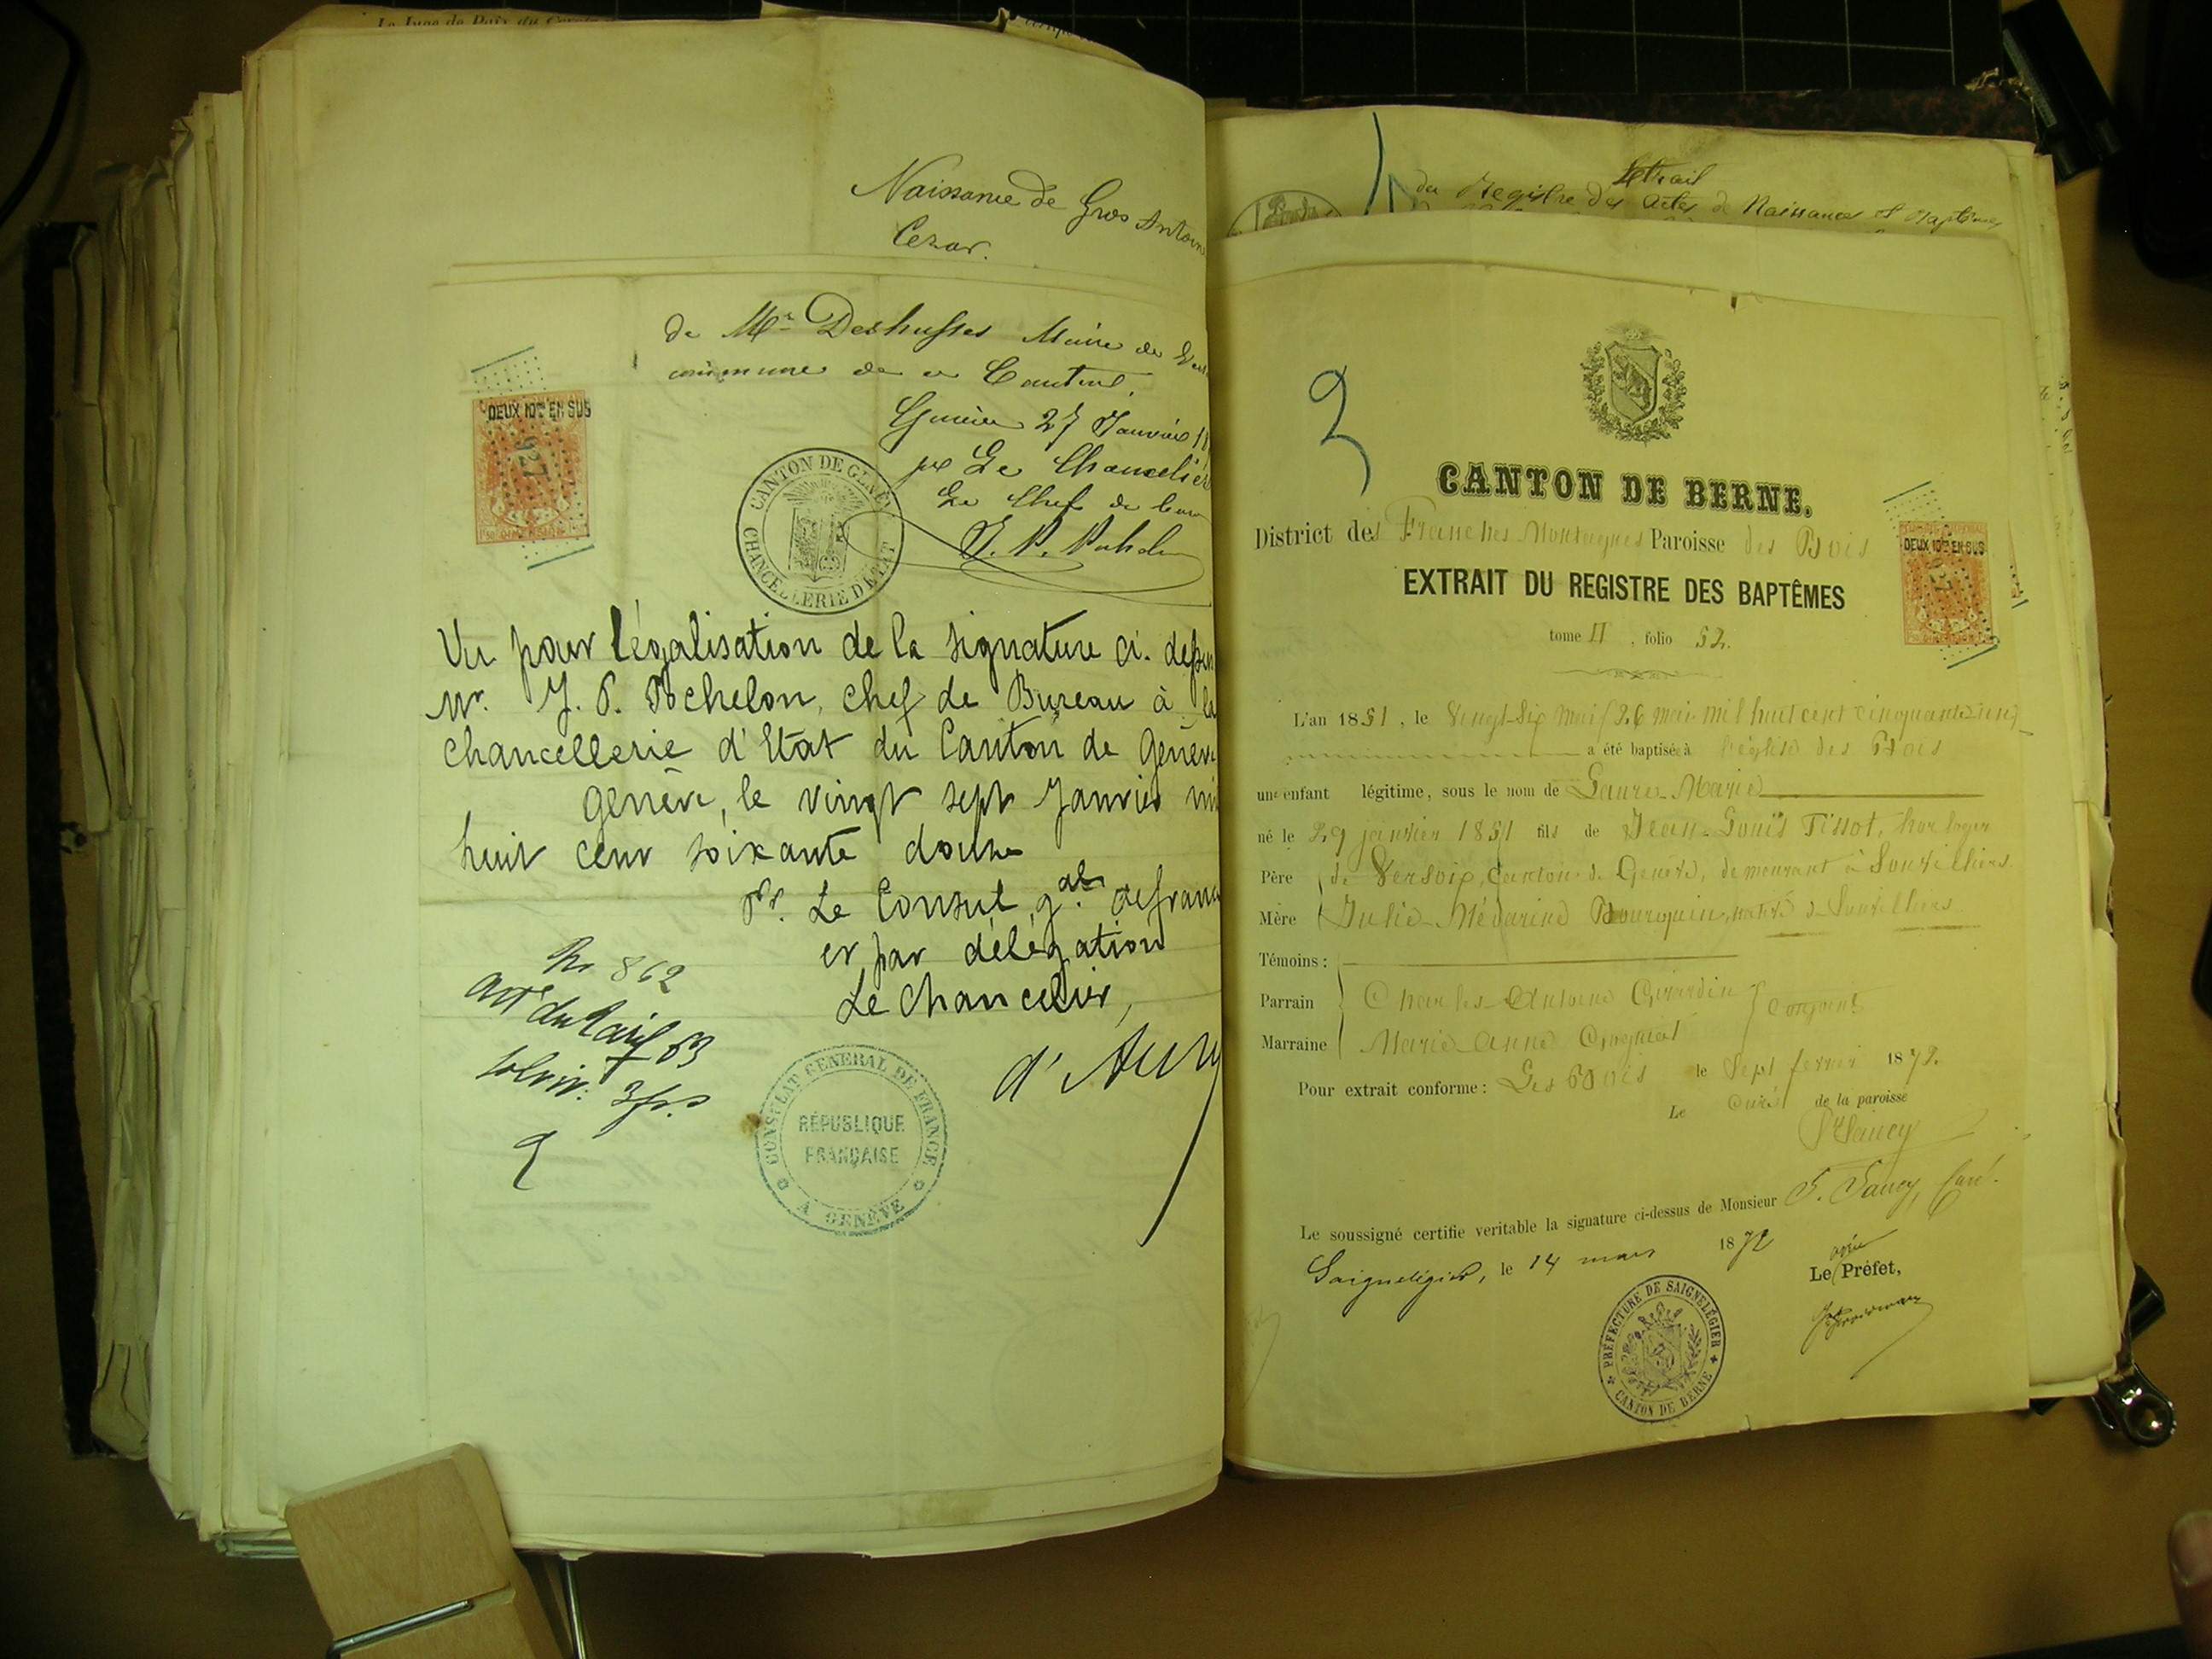 Le Juge de Paix du Canton
Naissance de Gros Antoine
Cezar.
de Mr Deshusses Maire de
commune de ce Canton.
Genève 27 Janvier 18
pr Le Chancelier
Le Chef de bureau
DEUX 10mes EN SUS
927
CANTON DE GENÈVE
CHANCELLERIE D'ÉTAT
Vu pour légalisation de la signature ci-dessus
Mr. J. P. Pochelon, chef de Bureau à la
chancellerie d'Etat du Canton de Genève
Genève, le vingt sept Janvier mil
huit cent soixante douze
Pr. Le Consul gal de france
et par délégation
Le Chancelier,
No 862
artle du tarif 63
3 frs
CONSULAT GENERAL DE FRANCE
RÉPUBLIQUE
FRANÇAISE
A GENÈVE
Extrait
du Registre des Actes de Naissances et Baptêmes
2
CANTON DE BERNE.
District des Franches Montagnes Paroisse des Bois
DEUX 10mes EN SUS
EXTRAIT DU REGISTRE DES BAPTÊMES
tome II, folio 52.
L'an 1851, le Vingt-six Mai (26 mai mil huit cent cinquante un)
a été baptisée à l'église des Bois
une enfant légitime, sous le nom de Laure-Marie
né le 29 janvier 1851 fils de Jean-Louis Tissot, horloger
Père de Versoix, Canton de Genève, demeurant à Sonvilliers
Mère Julie-Médarine Bourquin, native de Sonvilliers
Témoins :
Parrain Charles-Antoine Girardin
Marraine Marie-Anne
Pour extrait conforme : Les Bois le Sept fevrier 1872.
Le Curé de la paroisse
Saucy
Le soussigné certifie veritable la signature ci-dessus de Monsieur Saucy, Curé.
Saignelégier, le 14 mars 1872
Le Préfet,
PRÉFECTURE DE SAIGNELÉGIER
CANTON DE BERNE